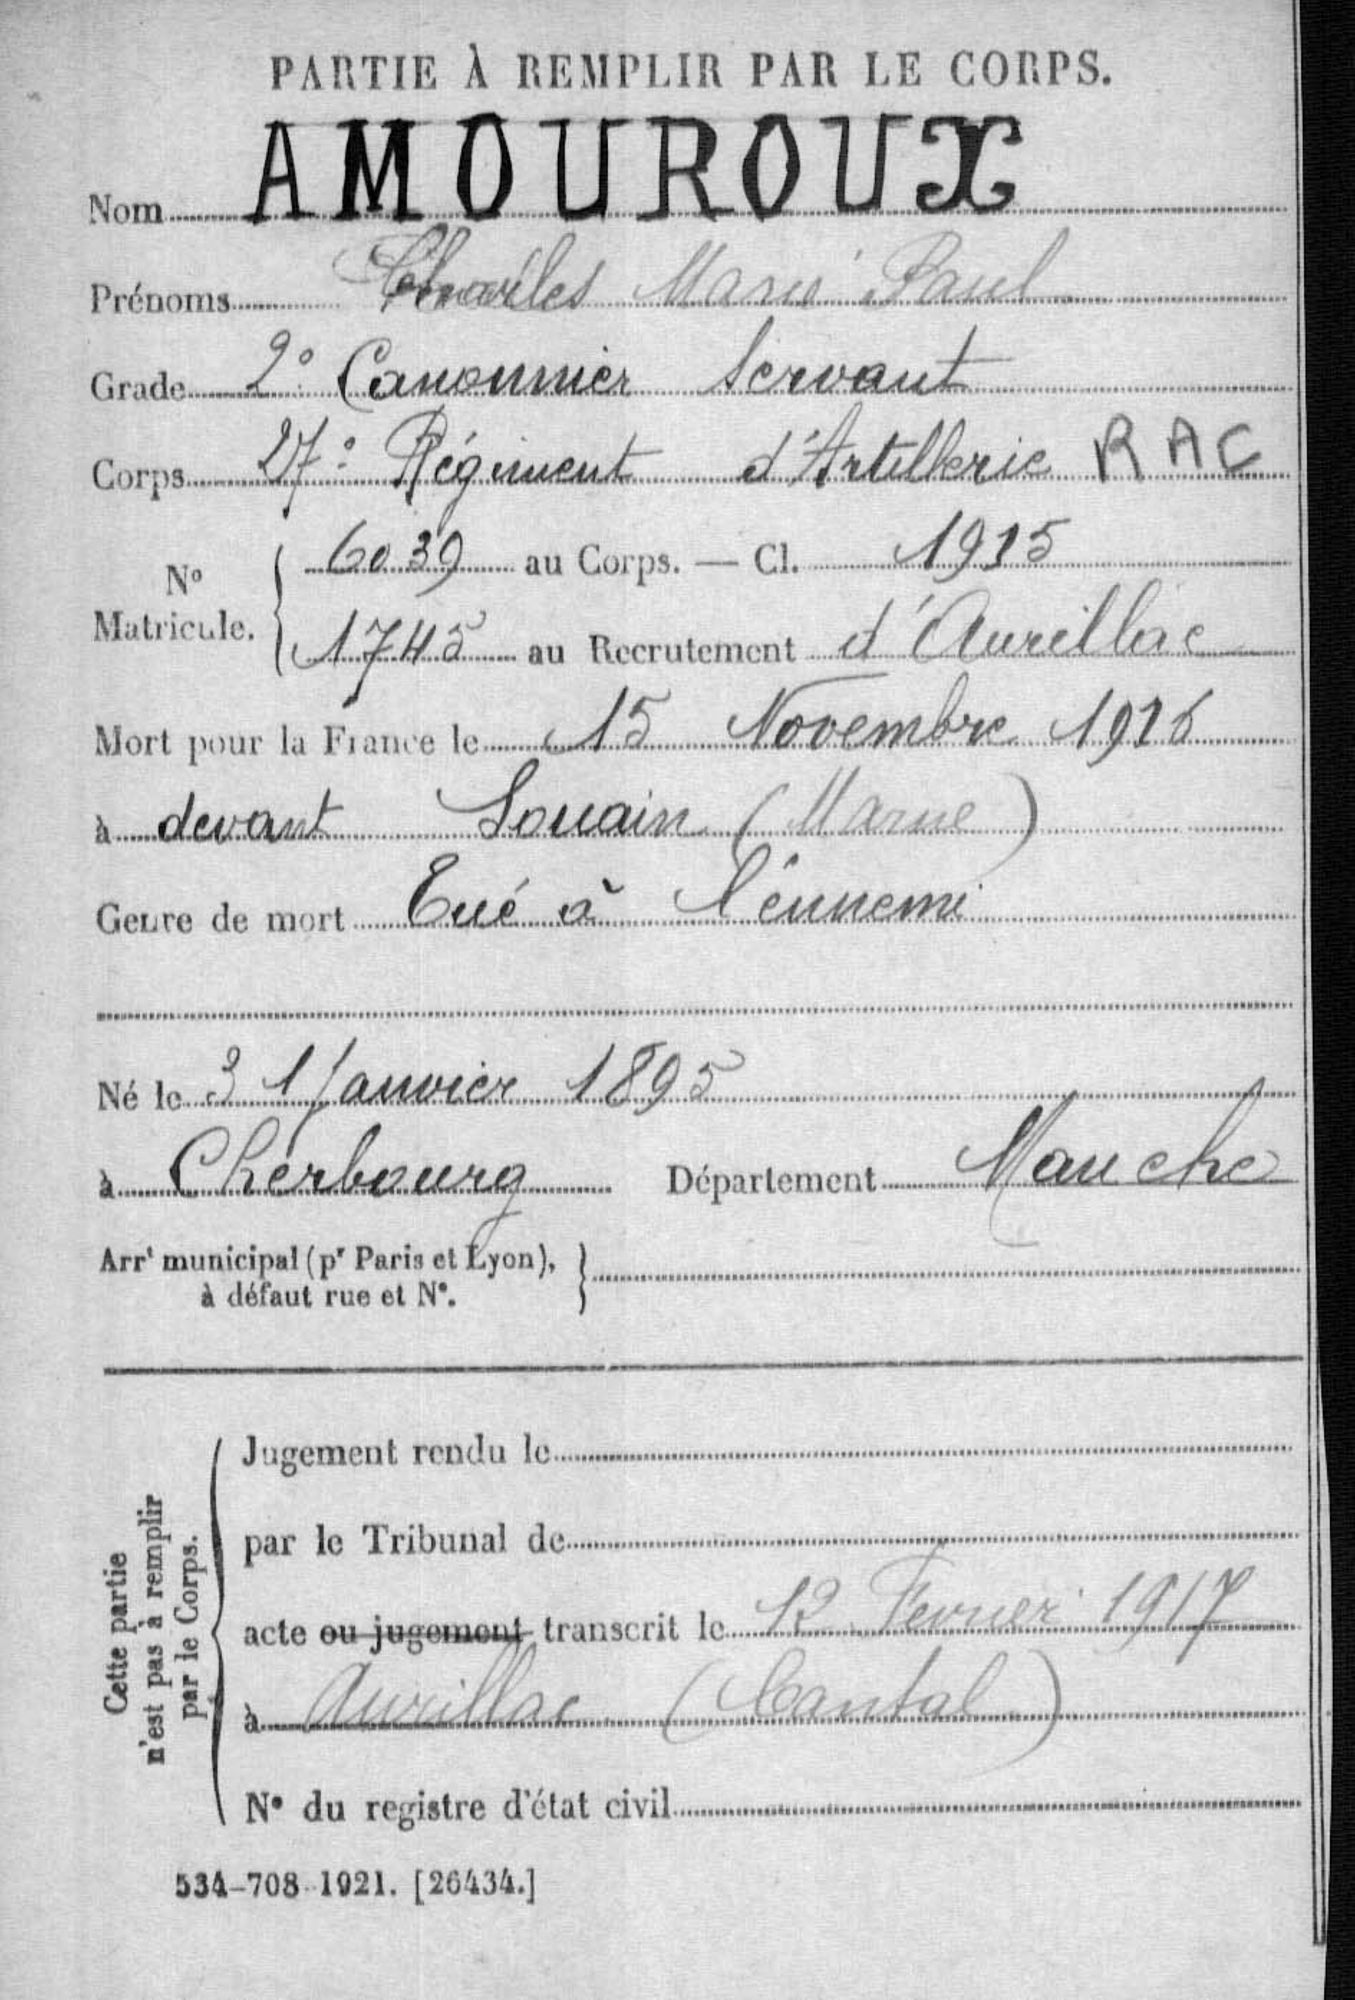 PARTIE À REMPLIR PAR LE CORPS.
Nom AMOUROUX
Prénoms Charles Marie Paul
Grade 2° Canonnier Servant
Corps 27° Régiment d'Artillerie RAC
N° Matricule. 6039 au Corps. — Cl. 1915
1745 au Recrutement d'Aurillac
Mort pour la France le 15 Novembre 1916
à devant Souain (Marne)
Genre de mort Tué à l'ennemi
Né le 31 Janvier 1895
à Cherbourg Département Manche
Arrt municipal (pr Paris et Lyon),
à défaut rue et N°.
Cette partie
n'est pas à remplir
par le Corps.
Jugement rendu le
par le Tribunal de
acte ou jugement transcrit le 12 Fevrier 1917
à Aurillac (Cantal)
N° du registre d'état civil
534-708-1921. [26434.]